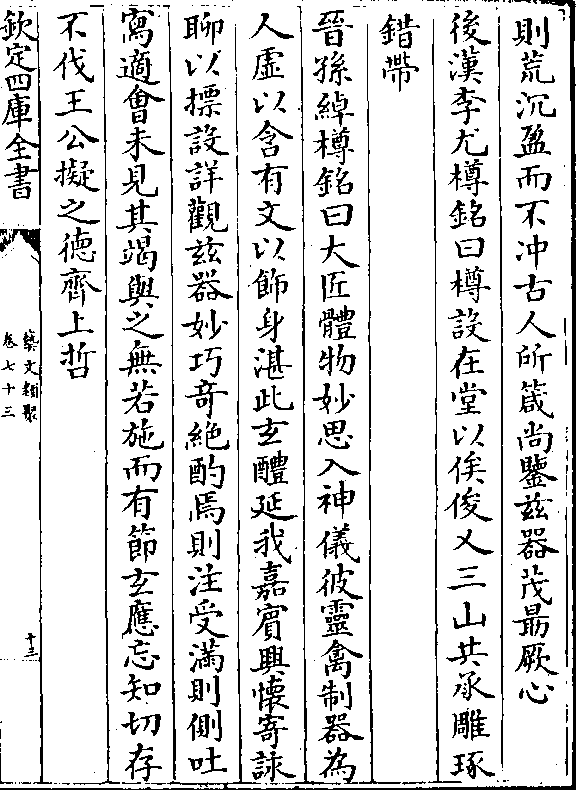 則荒沉盈而不冲古人所箴尚鑒兹器茂朂厥心
後漢李尤樽銘曰樽設在堂以俟俊乂三山共承雕琢
錯帶
晉孫綽樽銘曰大匠體物妙思入神儀彼靈禽制器為
人虛以含有文以飾身湛此玄醴延我嘉賓興懷寄詠
聊以摽設詳觀兹器妙巧竒絶酌焉則注受滿則側吐
寫適㑹未見其竭與之無若施而有節玄應忘知切存
不伐王公擬之徳齊上哲
欽定四庫全書
藝文類聚
卷七十三
十三